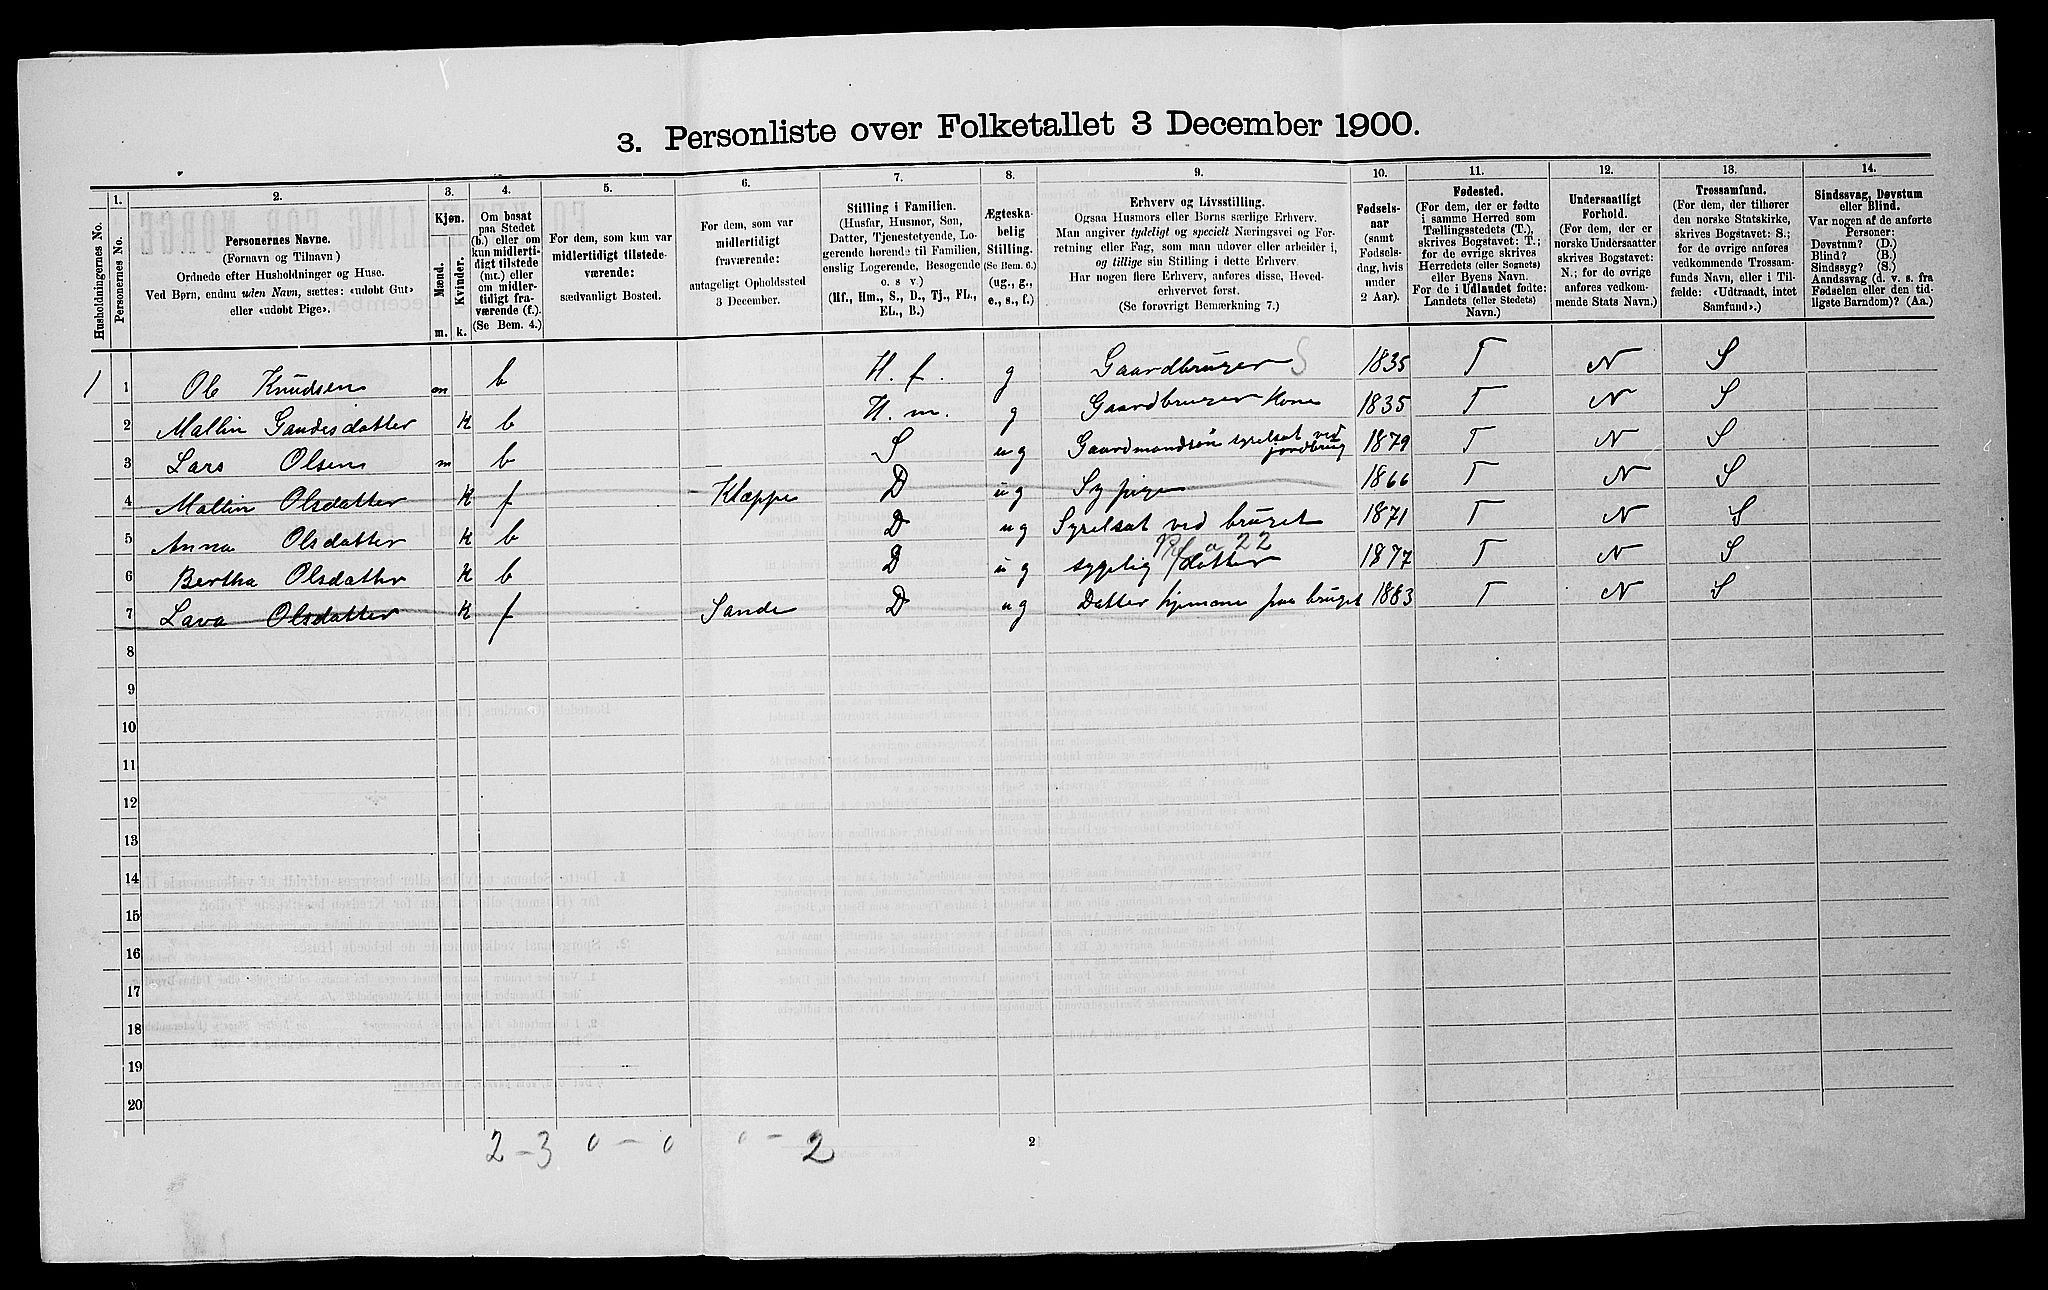 3. Personliste over Folketallet 3 December 1900.
Husholdningernes No.
1.
Personernes No.
2.
Personernes Navne.
(Fornavn og Tilnavn)
Ordnede efter Husholdninger og Huse.
Ved Børn, endnu uden Navn, sættes: «udøbt Gut»
eller «udøbt Pige».
3.
Kjøn.
Mænd.
Kvinder.
m. k.
4.
Om bosat
paa Stedet
(b.) eller om
kun midler-
tidigt tilstede
(mt.) eller
om midler-
tidigt fra-
værende (f.).
(Se Bem. 4.)
5.
For dem, som kun var
midlertidigt tilstede-
værende:
sædvanligt Bosted.
6.
For dem, som var
midlertidigt
fraværende:
antageligt Opholdssted
3 December.
7.
Stilling i Familien.
(Husfar, Husmor, Søn,
Datter, Tjenestetyende, Lo-
gerende hørende til Familien,
enslig Logerende, Besøgende
o. s. v.)
(Hf., Hm., S., D., Tj., FL.,
EL., B.)
8.
Ægteska-
belig
Stilling.
(Se Bem. 6.)
(ug., g.,
e., s., f.)
9.
Erhverv og Livsstilling.
Ogsaa Husmors eller Børns særlige Erhverv.
Man angiver tydeligt og specielt Næringsvei og For-
retning eller Fag, som man udøver eller arbeider i,
og tillige sin Stilling i dette Erhverv.
Har nogen flere Erhverv, anføres disse, Hoved-
erhvervet først.
(Se forøvrigt Bemærkning 7.)
10.
Fødsels-
aar
(samt
Fødsels-
dag, hvis
under
2 Aar).
11.
Fødested.
(For dem, der er fødte
i samme Herred som
Tællingsstedets (T.),
skrives Bogstavet: T.;
for de øvrige skrives
Herredets (eller Sognets)
eller Byens Navn.
For de i Udlandet fødte:
Landets (eller Stedets)
Navn.)
12.
Undersaatligt
Forhold.
(For dem, der er
norske Undersaatter
skrives Bogstavet:
N.; for de øvrige
anføres vedkom-
mende Stats Navn.)
13.
Trossamfund.
(For dem, der tilhører
den norske Statskirke,
skrives Bogstavet: S.;
for de øvrige anføres
vedkommende Trossam-
funds Navn, eller i Til-
fælde: «Udtraadt, intet
Samfund».)
14.
Sindssvag, Døvstum
eller Blind.
Var nogen af de anførte
Personer:
Døvstum? (D.)
Blind? (B.)
Sindssyg? (S.)
Aandssvag (d. v. s. fra
Fødselen eller den tid-
ligste Barndom)? (Aa.)
1 1 Ole Knudsen m b H. f. g Gaardbruger S 1835 T N S
2 Mallin Gaudesdatter K b H. m. g Gaardbruger Kone 1835 T N S
3 Lars Olsen m b S ug Gaardmandsøn syrelsat ved jordbrug 1879 T N S
4 Mallin Olsdatter K f Klæppe D ug Sypige 1866 T N S
5 Anna Olsdatter K b D ug Syrelsat ved bruget 1871 T N S
6 Bertha Olsdatter K b D ug sygelig datter 22 1877 T N S
7 Lava Olsdatter K f Sande D ug Datter hjemme paa bruget 1883 T N S
8
9
10
11
12
13
14
15
16
17
18
19
20
2-3 0-0 0-2
2